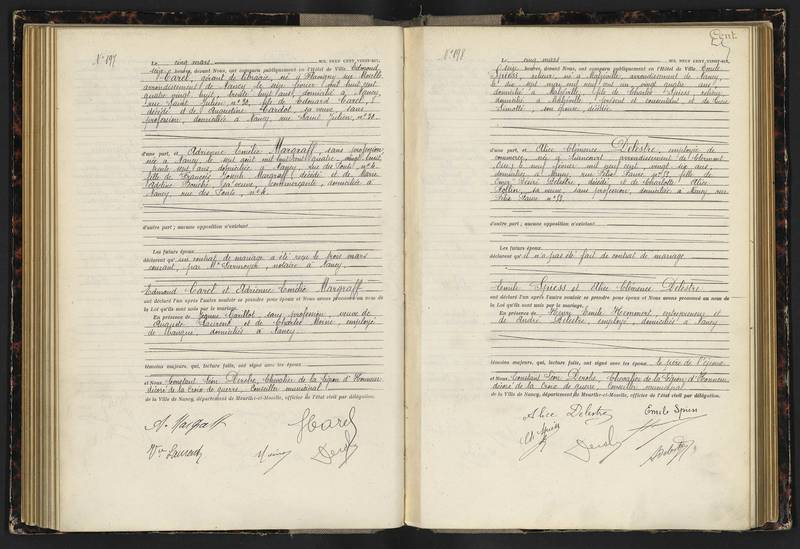 N° 197
Le cinq mars MIL NEUF CENT VINGT-SIX,
seize heures, devant Nous, ont comparu publiquement en l'Hôtel de Ville Edmond
Carel, gérant de librairie, né à Flavigny sur Moselle
arrondissement de Nancy le seize février mil huit cent
quatre vingt huit, trente huit ans domicilié à Nancy,
rue Saint Julien, n° 30, fils de Edouard Carel,
décédé et de Augustine Cardot, sa veuve, sans
profession, domiciliée à Nancy rue Saint Julien, n° 30.
d'une part, et Adrienne Emélie Margraff, sans profession
née à Nancy le sept août mil huit cent quatre vingt huit
trente sept ans, domiciliée à Nancy rue des Ponts n° 4.
fille de François Joseph Margraff décédé et de Marie
Adeline sa veuve, commerçante, domiciliée à
Nancy, rue des Ponts, n° 4.
d'autre part ; aucune opposition n'existant
Les futurs époux
déclarent qu'un contrat de mariage a été reçu le trois mars
courant, par Me notaire à Nancy.
Edmond Carel et Adrienne Emélie Margraff
ont déclaré l'un après l'autre vouloir se prendre pour époux et Nous avons prononcé au nom de
la Loi qu'ils sont unis par le mariage.
En présence de sans profession, veuve de
Auguste Laurent et de Charles Moine, employé
de banque, domiciliés à Nancy
témoins majeurs, qui, lecture faite, ont signé avec les époux
et Nous, Constant Léon Derobe, Chevalier de la Légion d'Honneur
décoré de la Croix de guerre, Conseiller municipal
de la Ville de Nancy, département de Meurthe-et-Moselle, officier de l'état civil par délégation.
A. Margraff
Carel
Vve Laurent
Moine
N° 198
Cent
Le cinq mars MIL NEUF CENT VINGT-SIX,
seize heures, devant Nous, ont comparu publiquement en l'Hôtel de Ville Emile
Spiess, relieur, né à Malzéville, arrondissement de Nancy,
le six sept mars mil neuf cent un, vingt quatre ans
domicilié à Malzéville, fils de Charles Spiess, relieur,
domicilié à Malzéville, présent et consentant et de
son épouse, décédée
d'une part, et Alice Clémence Delestre, employée de
commerce, née à Liancourt arrondissement de Clermont
Oise, le neuf février mil neuf cent, vingt six ans,
domiciliée à Nancy, rue Félix Faure n° 53, fille de
Désiré Delestre, décédé, et de Charlotte Alice
sa veuve, sans profession, domiciliée à Nancy rue
Félix Faure n° 53.
d'autre part ; aucune opposition n'existant
Les futurs époux
déclarent qu'il n'a pas été fait de contrat de mariage
Emile Spiess et Alice Clémence Delestre
ont déclaré l'un après l'autre vouloir se prendre pour époux et Nous avons prononcé au nom de
la Loi qu'ils sont unis par le mariage.
En présence de Henri Emile Hemmert, entrepreneur et
de André Delestre, employé, domiciliés à Nancy
témoins majeurs, qui, lecture faite, ont signé avec les époux le père de l'époux
et Nous Constant Léon Derobe, Chevalier de la Légion d'Honneur
décoré de la Croix de guerre, Conseiller municipal
de la Ville de Nancy, département de Meurthe-et-Moselle, officier de l'état civil par délégation.
Alice Delestre
Emile Spiess
Ch Spiess
Delestre